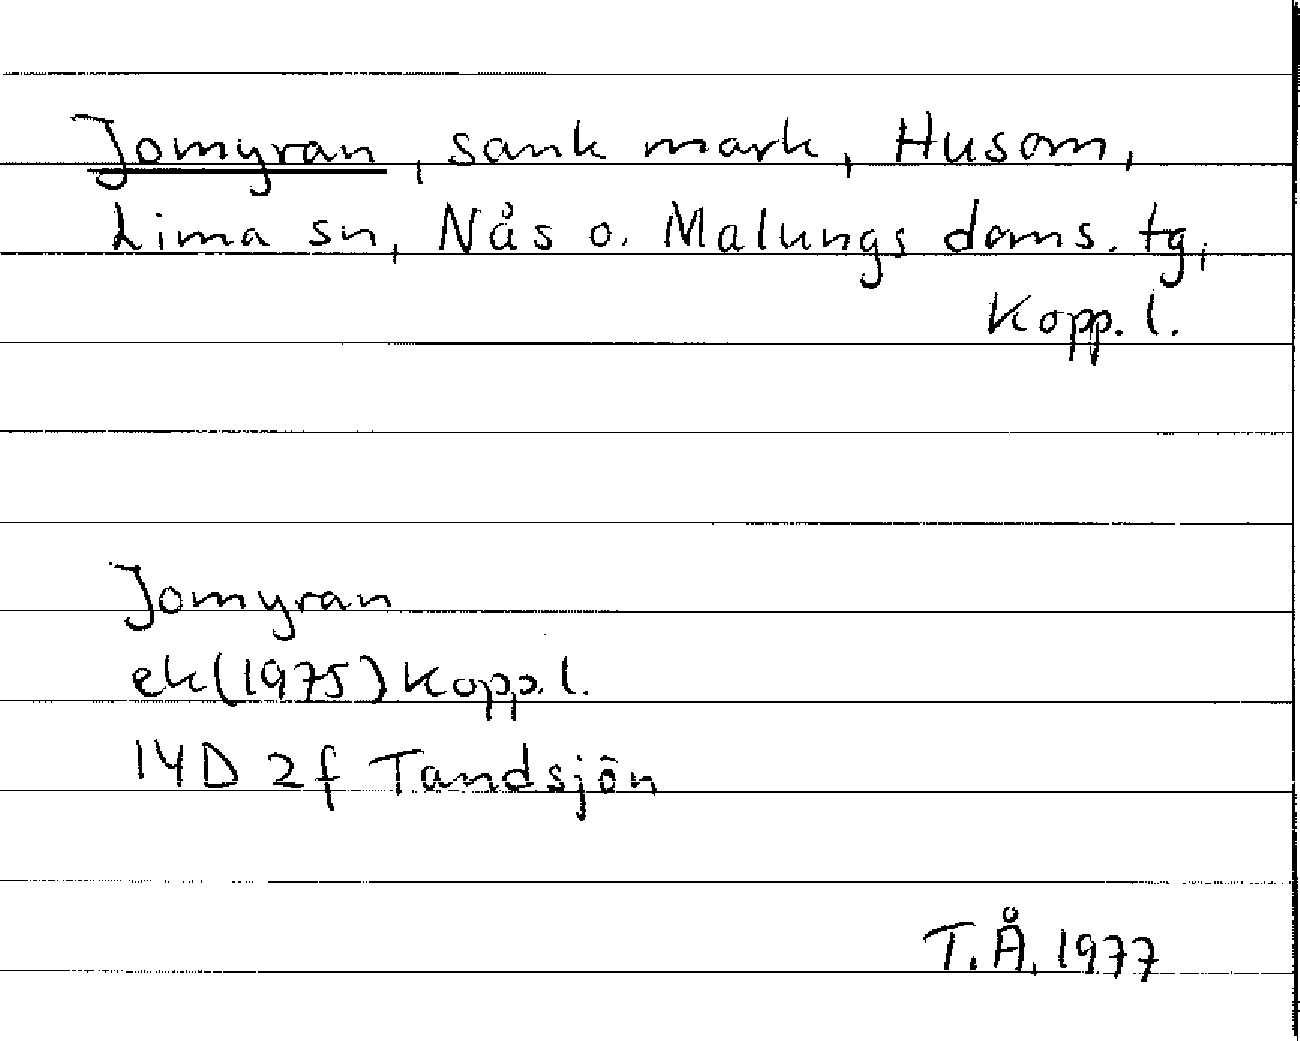 Jomyran, sank mark, Husom,
Lima sn, Nås o. Malungs doms. tg,
Kopp. l.
Jomyran
ek (1975) Kopp. l.
14D 2f Tandsjön
T.Å. 1977